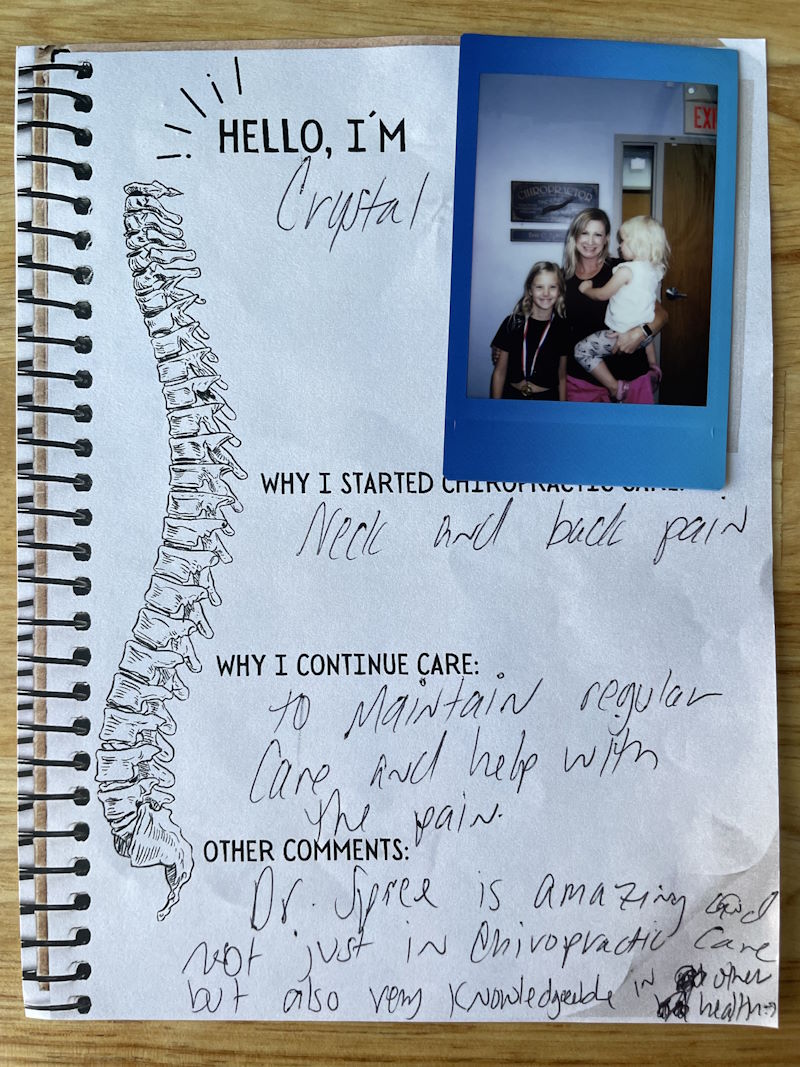 HELLO, I'M
Crystal
EXI
CHIROPRACTOR
WHY I STARTED CHIROPRACTIC CARE:
Neck and back pain
WHY I CONTINUE CARE:
to Maintain regular
Care and help with
the pain.
OTHER COMMENTS:
Dr. Spree is amazing and
not just in Chiropractic Care
but also very Knowledgeable in other
health :)